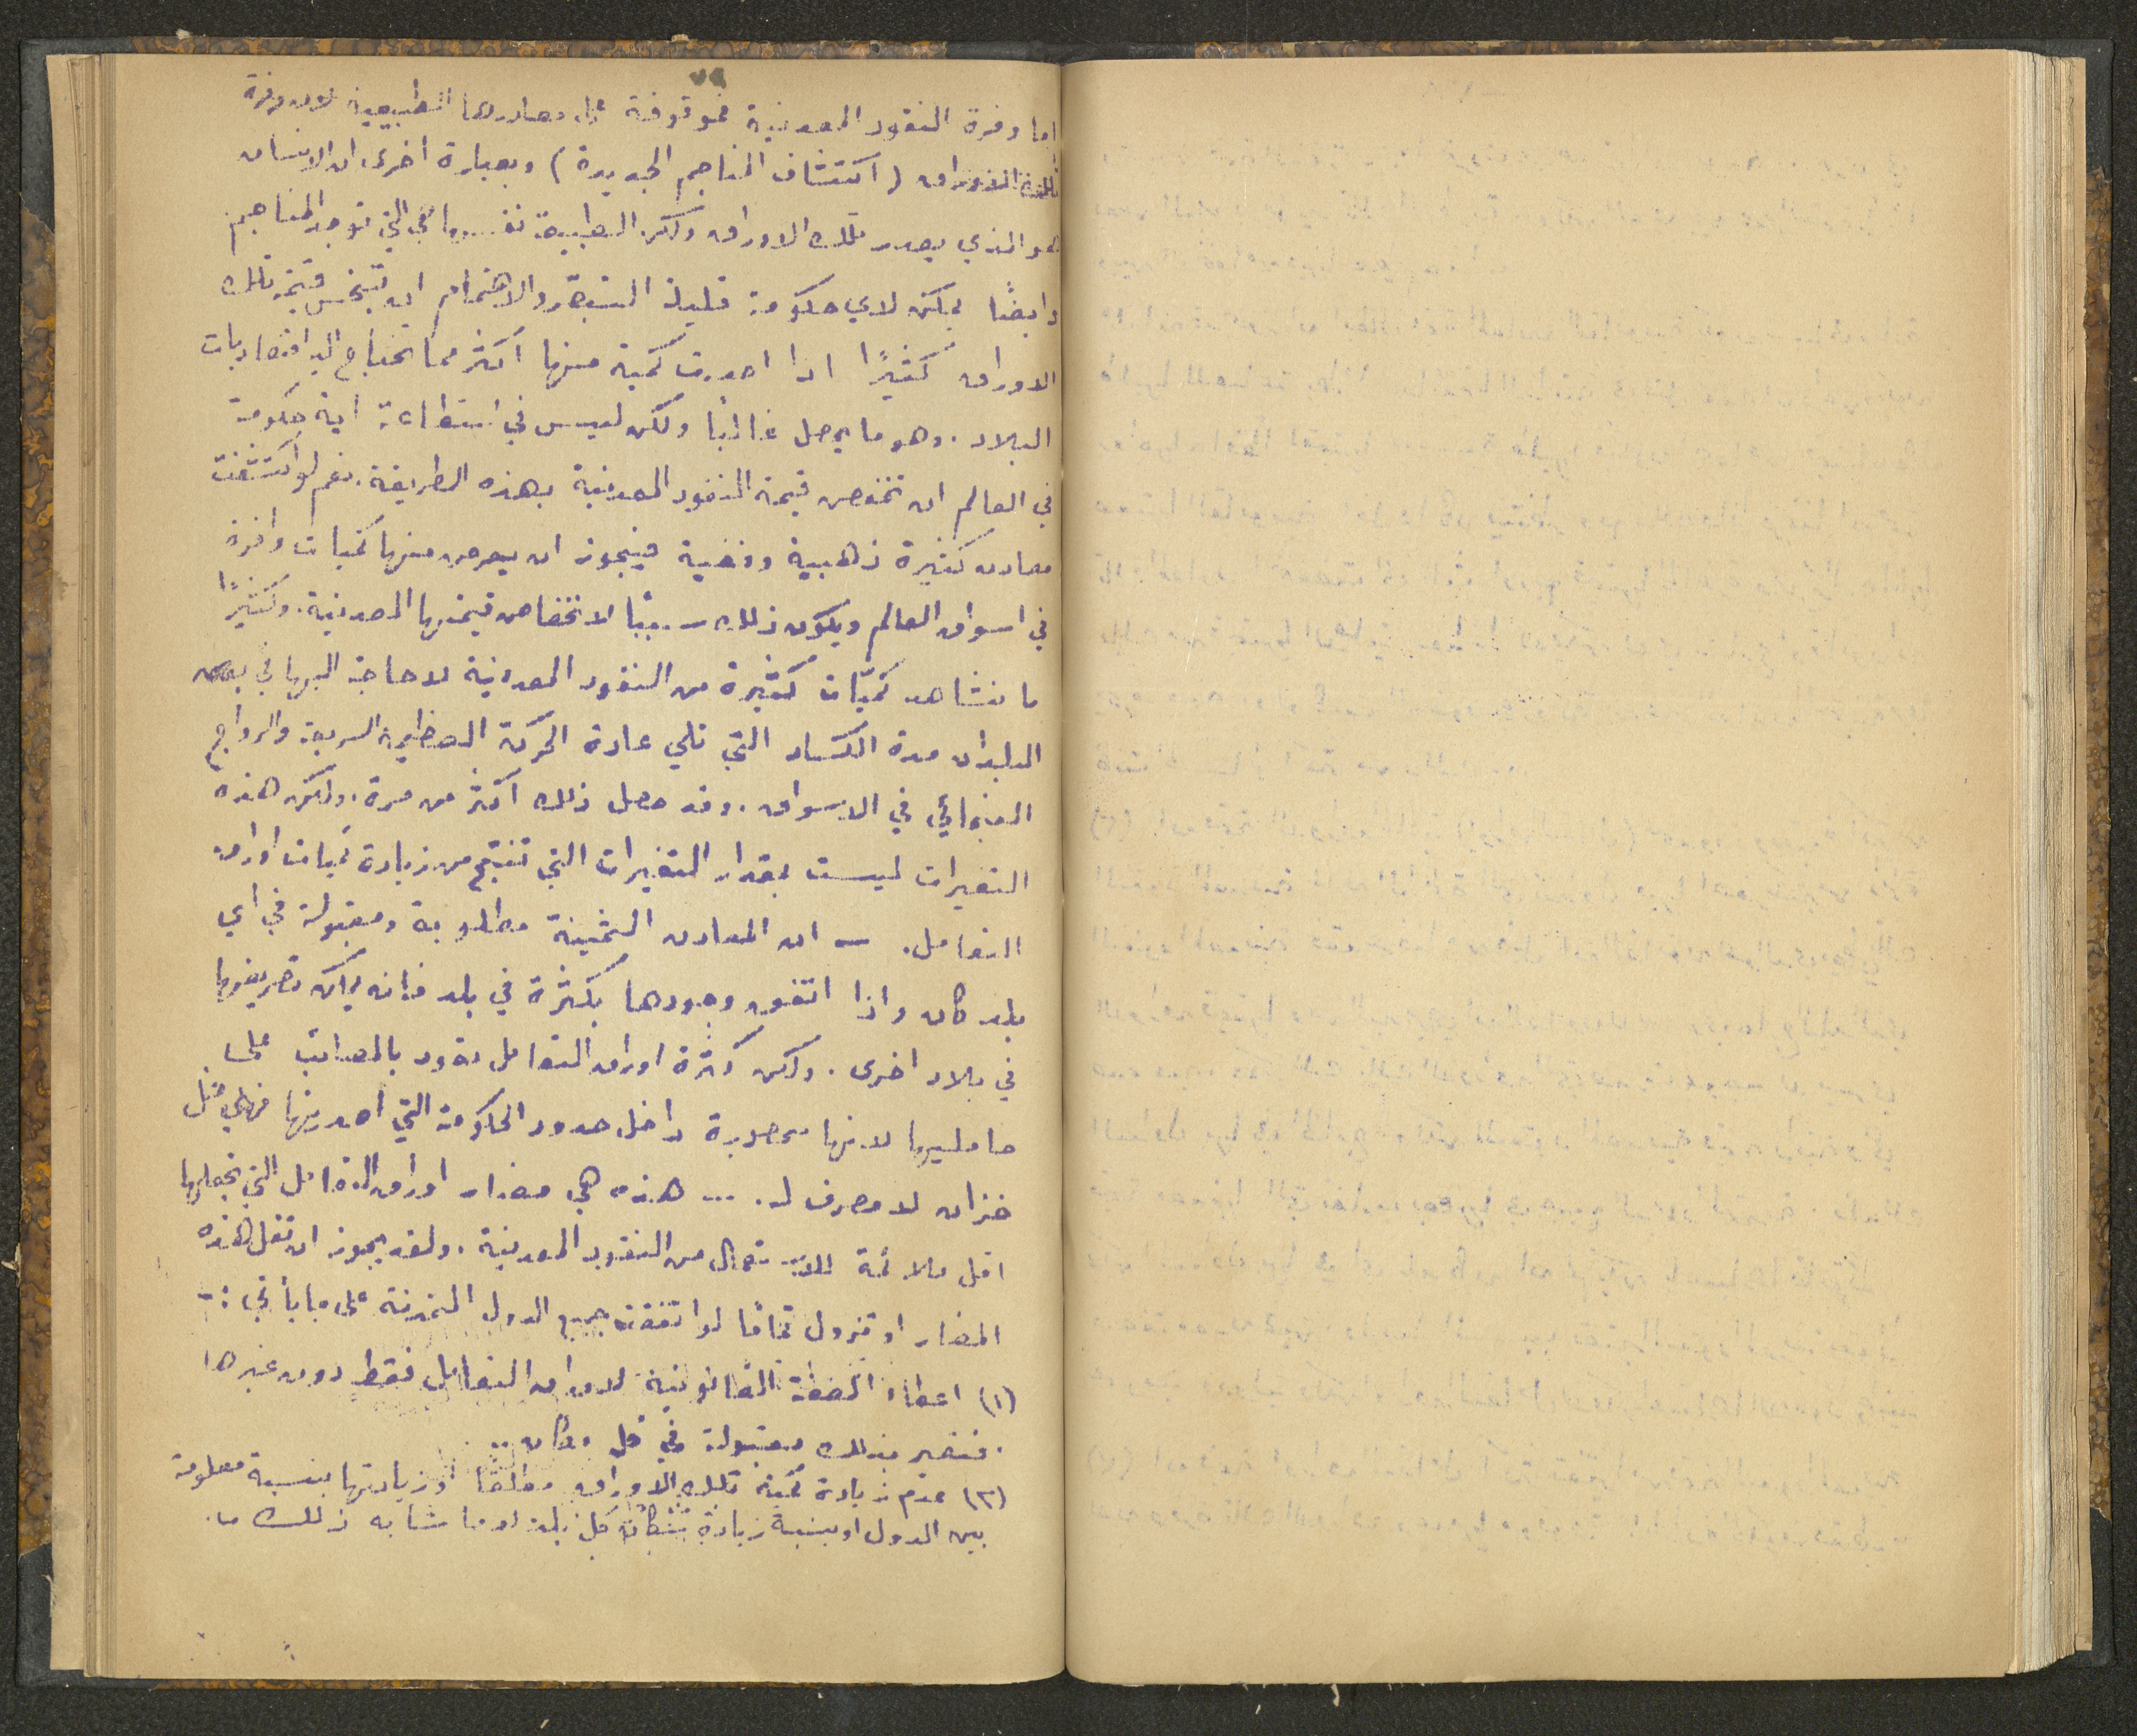 ٧٩
اما وفرة النقود المعدنية فموقوفة على مصادرها الطبيعية لان وفرة
تلك الاوراق (اكتشاف المناجم الجديدة) وبعبارة اخرى ان الانسان
هو الذي يصدر تلك الاوراق ولكن الطبيعة نفسها هي التي توجد المناجم
وايضًا يمكن لاي حكومة قليلة التبصّر والاهتمام ان تبخس قيمة تلك
الاوراق كثيرًا اذا اصدرت كمية منها اكثر مما تحتاج اليه اقتصاديات
البلاد. وهو ما يحصل غالبًا ولكن ليس في استطاعة اية حكومة
في العالم ان تخفض قيمة النقود المعدنية بهذه الطريقة. نعم لو اكتشفت
معادن كثيرة ذهبية وفضية فيجوز ان يعرض منها كميات وافرة
في اسواق العالم ويكون ذلك سببًا لانخفاض قيمتها المعدنية. وكثيرًا
ما نشاهد كميّات كثيرة من النقود المعدنية لا حاجة اليها في بعض
البلدان مدة الكساد التي تلي عادة الحركة العظيمة السريعة والرواج
الفجائي في الاسواق. وقد حصل ذلك اكثر من مرة. ولكن هذه
التغيرات ليست بمقدار التغيرات التي تنتج من زيادة كميات اوراق
التعامل. — ان المعادن الثمينة مطلوبة ومقبولة في اي
بلد كان واذا اتفق وجودها بكثرة في بلد فانه يمكن تصريفها
في بلاد اخرى. ولكن كثرة اوراق التعامل تعود بالمصائب على
حامليها لانها محصورة داخل حدود الحكومة التي اصدرتها فهي مثل
خزان لا مصرف له. ... هذه هي مضار اوراق التعامل التي تجعلها
اقل ملائمة للاستعمال من النقود المعدنية. ولقد يجوز ان تقل هذه
المضار او تزول تمامًا لو اتفقت جميع الدول المتمدنة على ما يأتي :-
(١) اعطاء الصفة القانونية لاوراق التعامل فقط دون غيرها
فتصير بذلك مقبولة في كل مكان ..
(٢) عدم زيادة كمية تلك الاوراق مطلقًا او زيادتها بنسبة معلومة
بين الدول او بنسبة زيادة سكان كل بلد او ما شابه ذلك